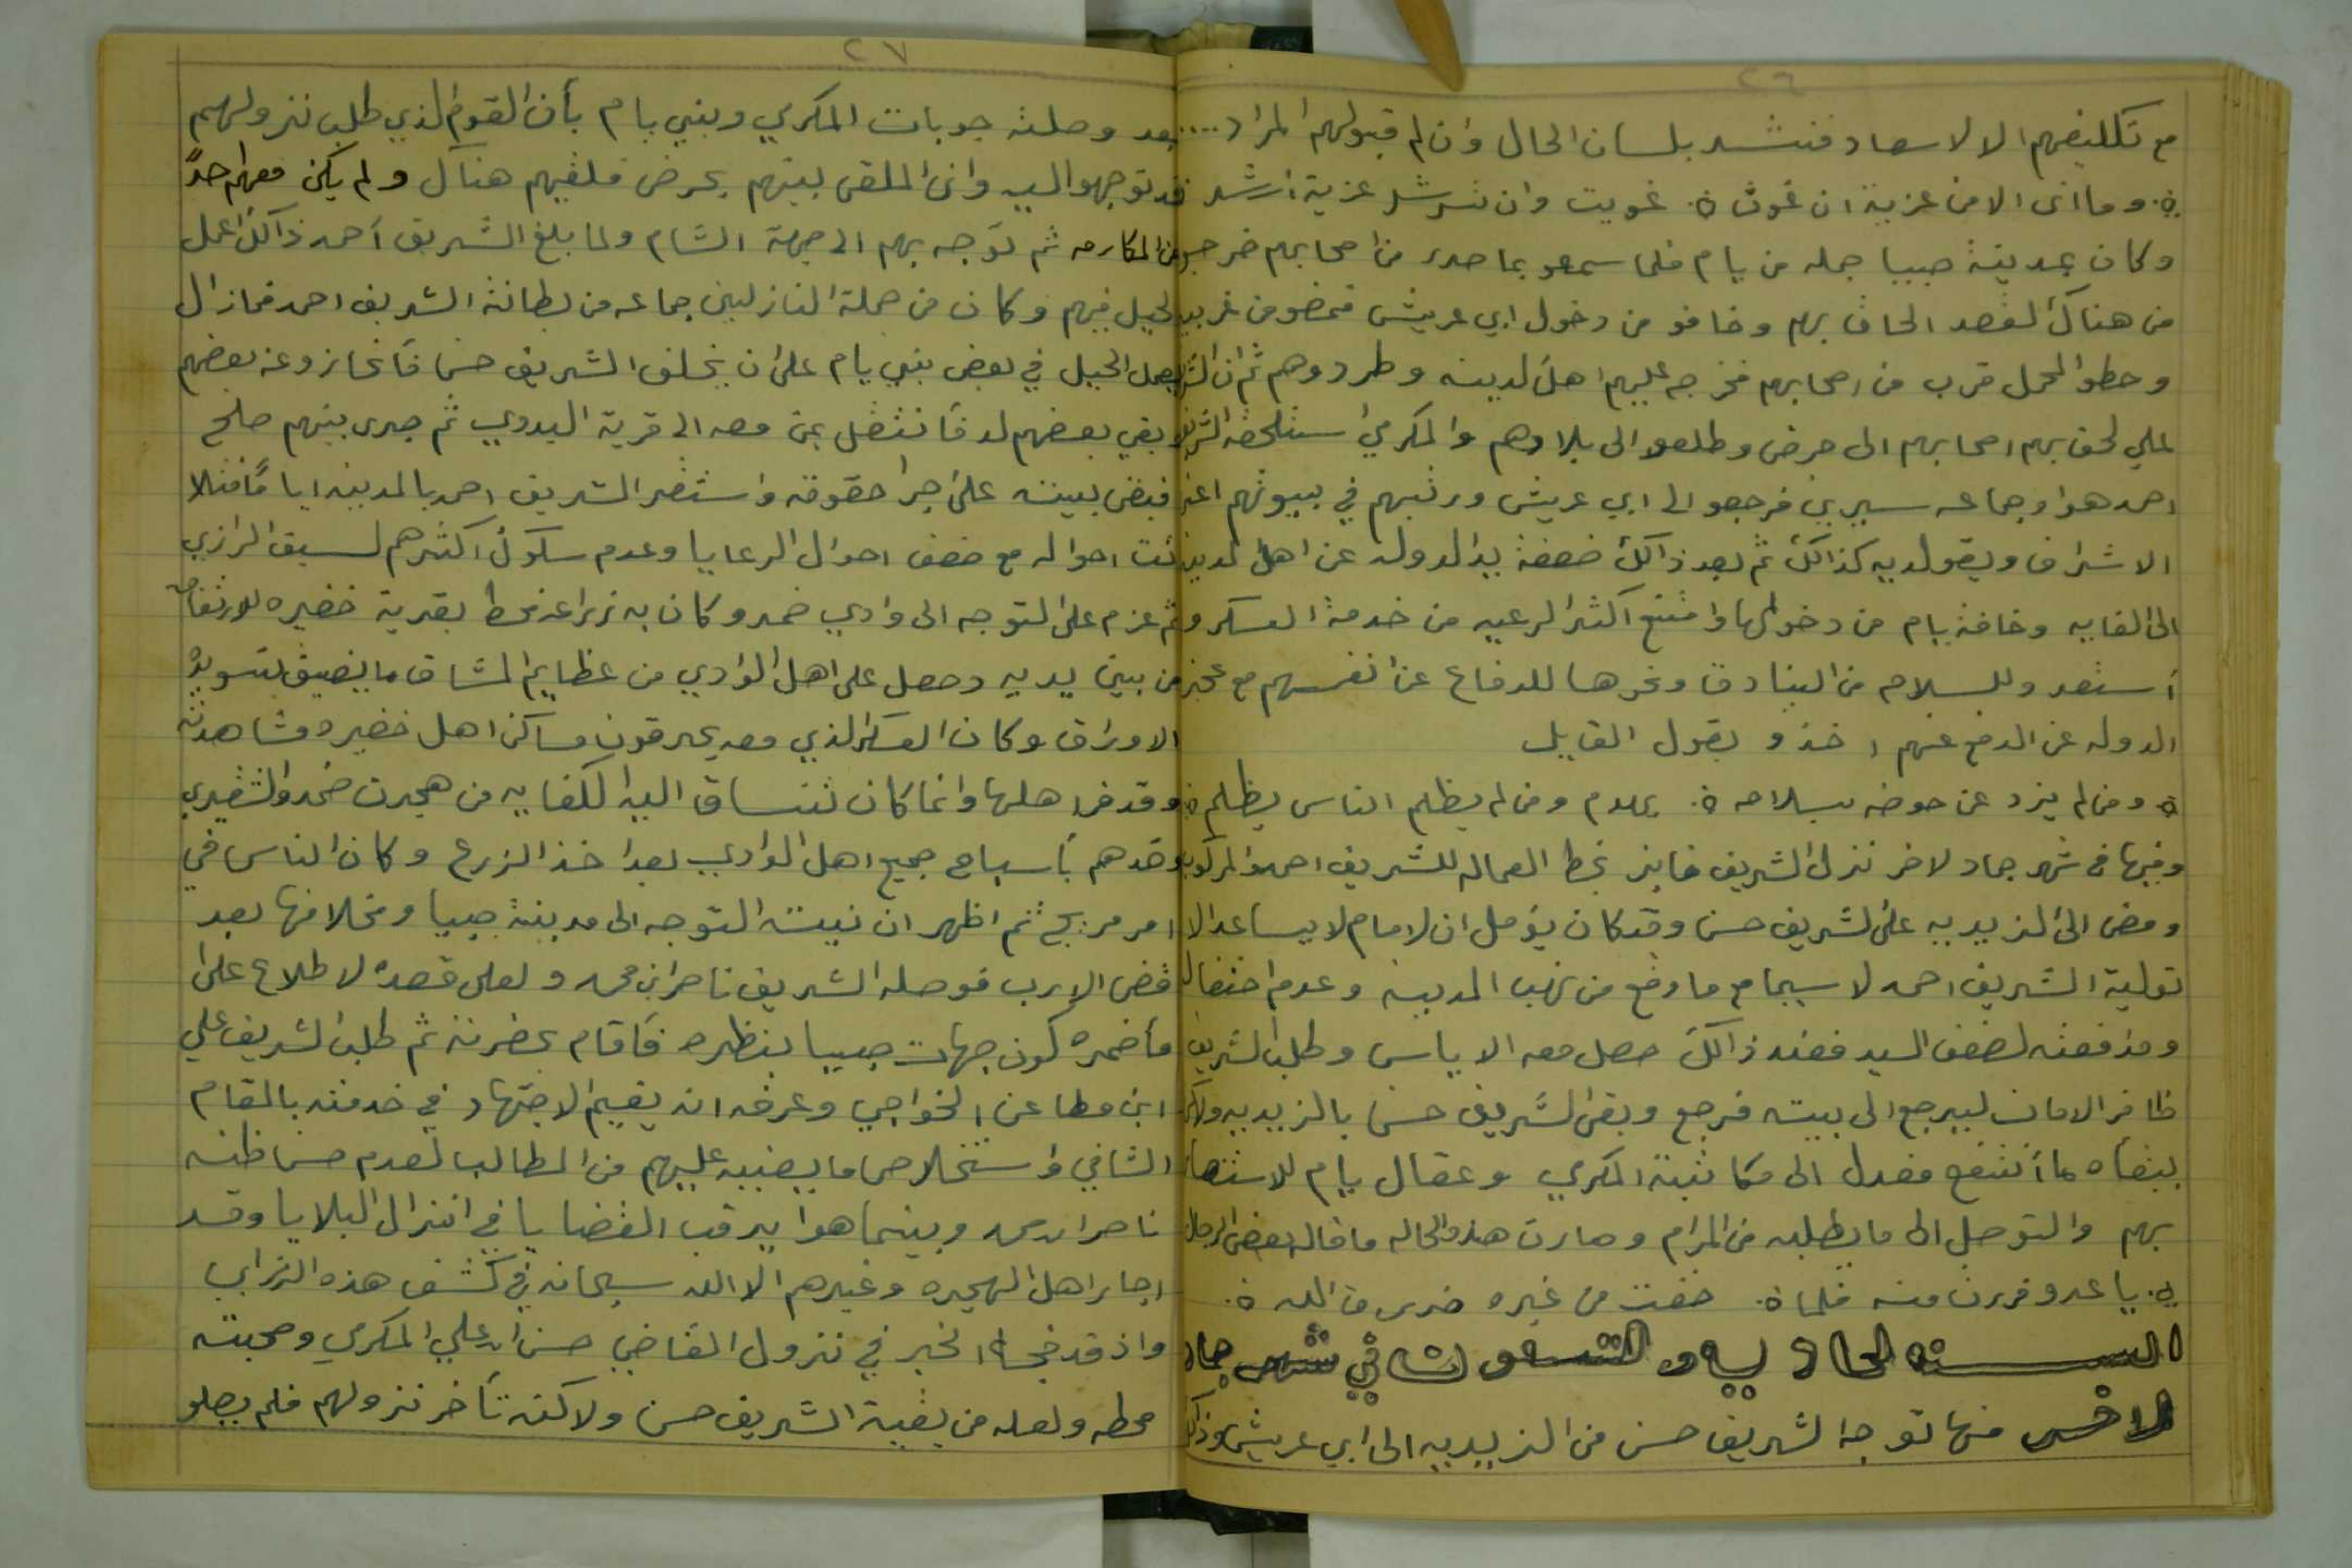 ٢٦
مع تكليفهم الا لاسعاد فنشد بلسان الحال وان لم قبولهم المراد ....
ة. وما انى الا من غزية ان غوت ة. غويت وان ترشد غزية ارشد
وكان بمدينة صبيا جمله من يام فلما سمعو بما صدر من اصحابهم خرجو
من هناك لقصد الحاق بهم وخافو من دخول ابي عريش فمضو من غربيه
وحطو المحمل قرب من اصحابهم فخرجه عليهم اهل لمدينه وطردوهم ثم ان الشريف
علي لحق بهم اصحابهم الى حرض وطلعو الى بلادهم والمكرمي استلحقه الشريف
احمد هوا وجماعه سيري فرجعو الى ابي عريش ورتبهم في بيوتهم اعني
الاشراف ويقولديه كذالك ثم بعد ذالك ضعفة يدالدوله عن اهل لمدينه
الى الغايه وخافة يام من دخولها وامتنع اكثر الرعيه من خدمة العسكر و
أستعدو للسلاح من البنادق ونحوها للدفاع عن انفسهم مع عجز
الدوله عن الدفع عنهم اخذو بقول القايل
ة. ومن لم يزد عن حوضه بسلاحه ة. يهدم ومن لم يظلم الناس يظلم ة
وفيها في شهر جماد لاخر نزل الشريف فايز بخط العماله للشريف احمد والمركوب
ومضى الى الزيديه على الشريف حسن وقد كان يؤمل ان لامام لا يساعد الا
تولية الشريف احمد لا سيما مع ما وقع من نهب المدينه وعدم احتفاله
ومدفعته لضعف اليد فعند ذالك حصل معه الاياس وطلب الشريف
ظافر الامان ليرجع الى بيته فرجع وبقى الشريف حسن بالزيديه ولاكن
بيثقاه ما أنتفع فعدل الى مكاتبة المكرمي وعقال يام للاستنصار
بهم والتوصل الى مايطلبه من المرام وصارت هذه الحاله ما قال بعض الرجال
ي. ياعدو فررت منه فلما ة. خفت من غيره ضرى من الله ة.
السنه الحاديه و التسعون تا في شهر جماد
الاخر منها توجه الشريف حسن من الزيديه الى ابي عريش وذالك
٢٧
بعد وصلته جوبات المكرمي وبني يام بأن القوم الذي طلب نزولهم
قد توجهو اليه وان الملقى بينهم بحرض فلقيهم هناك ولم يكن معهم احدً
من المكارمه ثم توجه بهم الى جهة الشام ولما بلغ الشريف أحمد ذالك اعمل
الحيل فيهم وكان من جملة النازلين جماعه من بطانة الشريف احمد فمازال
يعمل الحيل في بعض بني يام على ان يخلف الشريف حسن فأنحازو عنه بعضهم
وبقي بعضهم لد فأنتقل بمن معه الى قرية البدوي ثم جرى بينهم صلح
فبقى ببيته على اجرا حقوقه واستقر الشريف احمد بالمدينه اياماً فتلا
شت احواله مع ضعف احوال الرعايا وعدم سكون اكثرهم لسبق الرازي
ثم عزم على التوجه الى وادي ضمد وكان به زراعه فحط بقرية خضيره للارتفاق
من بين يديه وحصل على اهل الوادي من عظايم المشاق ما يضيق بتسويدة
الاوراق وكان العسكر الذي معه يحرقون مساكن اهل خضيره مشاهدته
وقد فر اهلها وانما كان تنساق اليه الكفايه من هجرت ضمد والشقيري
وقدهم بأسباح جميع اهل الوادي بعد اخذ الزرع وكان الناس في
امر مريج ثم اظهر ان نيته التوجه الى مدينة صبيا ومخلافها بعد
قضى الإرب فوصله الشريف ناصر ابن محمد ولعلى قصده لاطلاع على
مأضمره كون جهات صبيا بنظره فأقام بحضرته ثم طلب الشريف علي
ابن مطاعن الخواجي وعرفه انه يقيم الاجتهاد في خدمته بالمقام
الشافي واستخلاص مايعنيه عليهم من المطالب لعدم حسن ظنه
ناصر ابن محمد وبينما هوا يرقب القضايا في انزال البلايا وقد
اجار اهل الهجره وغيرهم الا الله سبحانه في كشف هذه الرزاي
واذ قد فجاء الخبر في نزول القاضي حسن ابن علي المكرمي وصحبته
محطه ولعله من بقية الشريف حسن ولاكنه تأخر نزولهم فلم يصلو